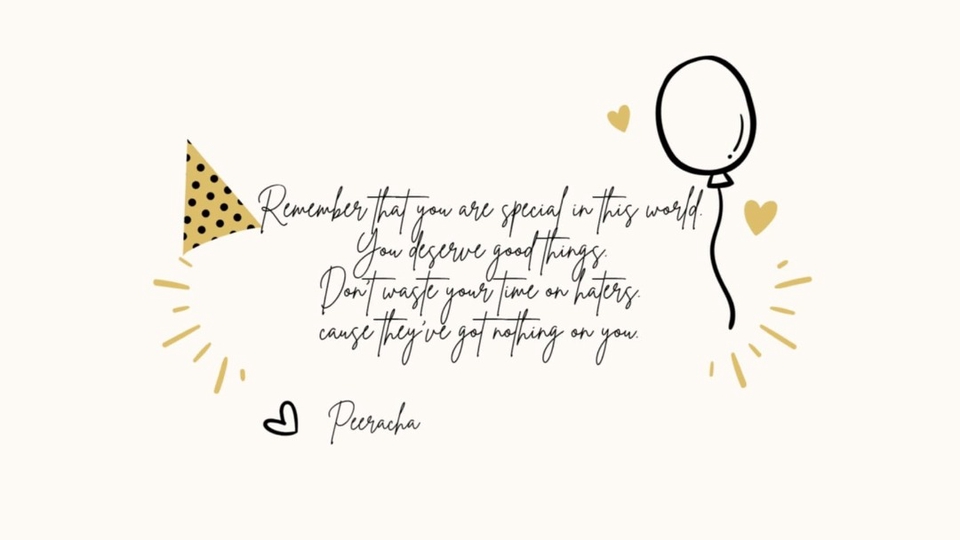 Remember that you are special in this world.
You deserve good things.
Don't waste your time on haters.
cause they've got nothing on you.
Peeracha